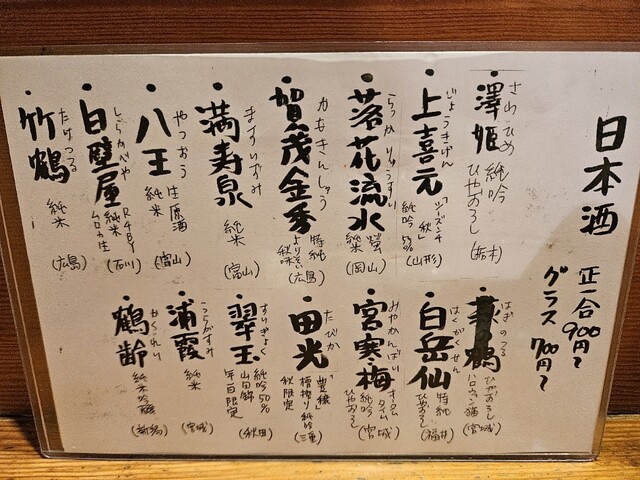 日本酒
正一合 900円〜
グラス 700円〜
・澤姫 さわひめ 純吟 ひやおろし (栃木)
・上喜元 じょうきげん 純吟 (山形)
・落花流水 らっかりゅうすい 純米 (岡山)
・賀茂金秀 かもきんしゅう 特純 (広島)
・満寿泉 ますいずみ 純米 (富山)
・八王 やつおう 純米 生原酒 (富山)
・白壁屋 しらかべや 純米 ムロカ生 (石川)
・竹鶴 たけつる 純米 (広島)
・萩の鶴 はぎのつる ひやおろし (宮城)
・白岳仙 はくがくせん 特純 ひやおろし (福井)
・宮寒梅 みやかんばい 純吟 ひやおろし (宮城)
・田光 たびか 槽搾り 純吟 秋限定 (三重)
・翠玉 すいぎょく 純吟50% 山田錦 年1回限定 (秋田)
・浦霞 うらがすみ 純米 (宮城)
・鶴齢 かくれい 純米吟醸 (新潟)